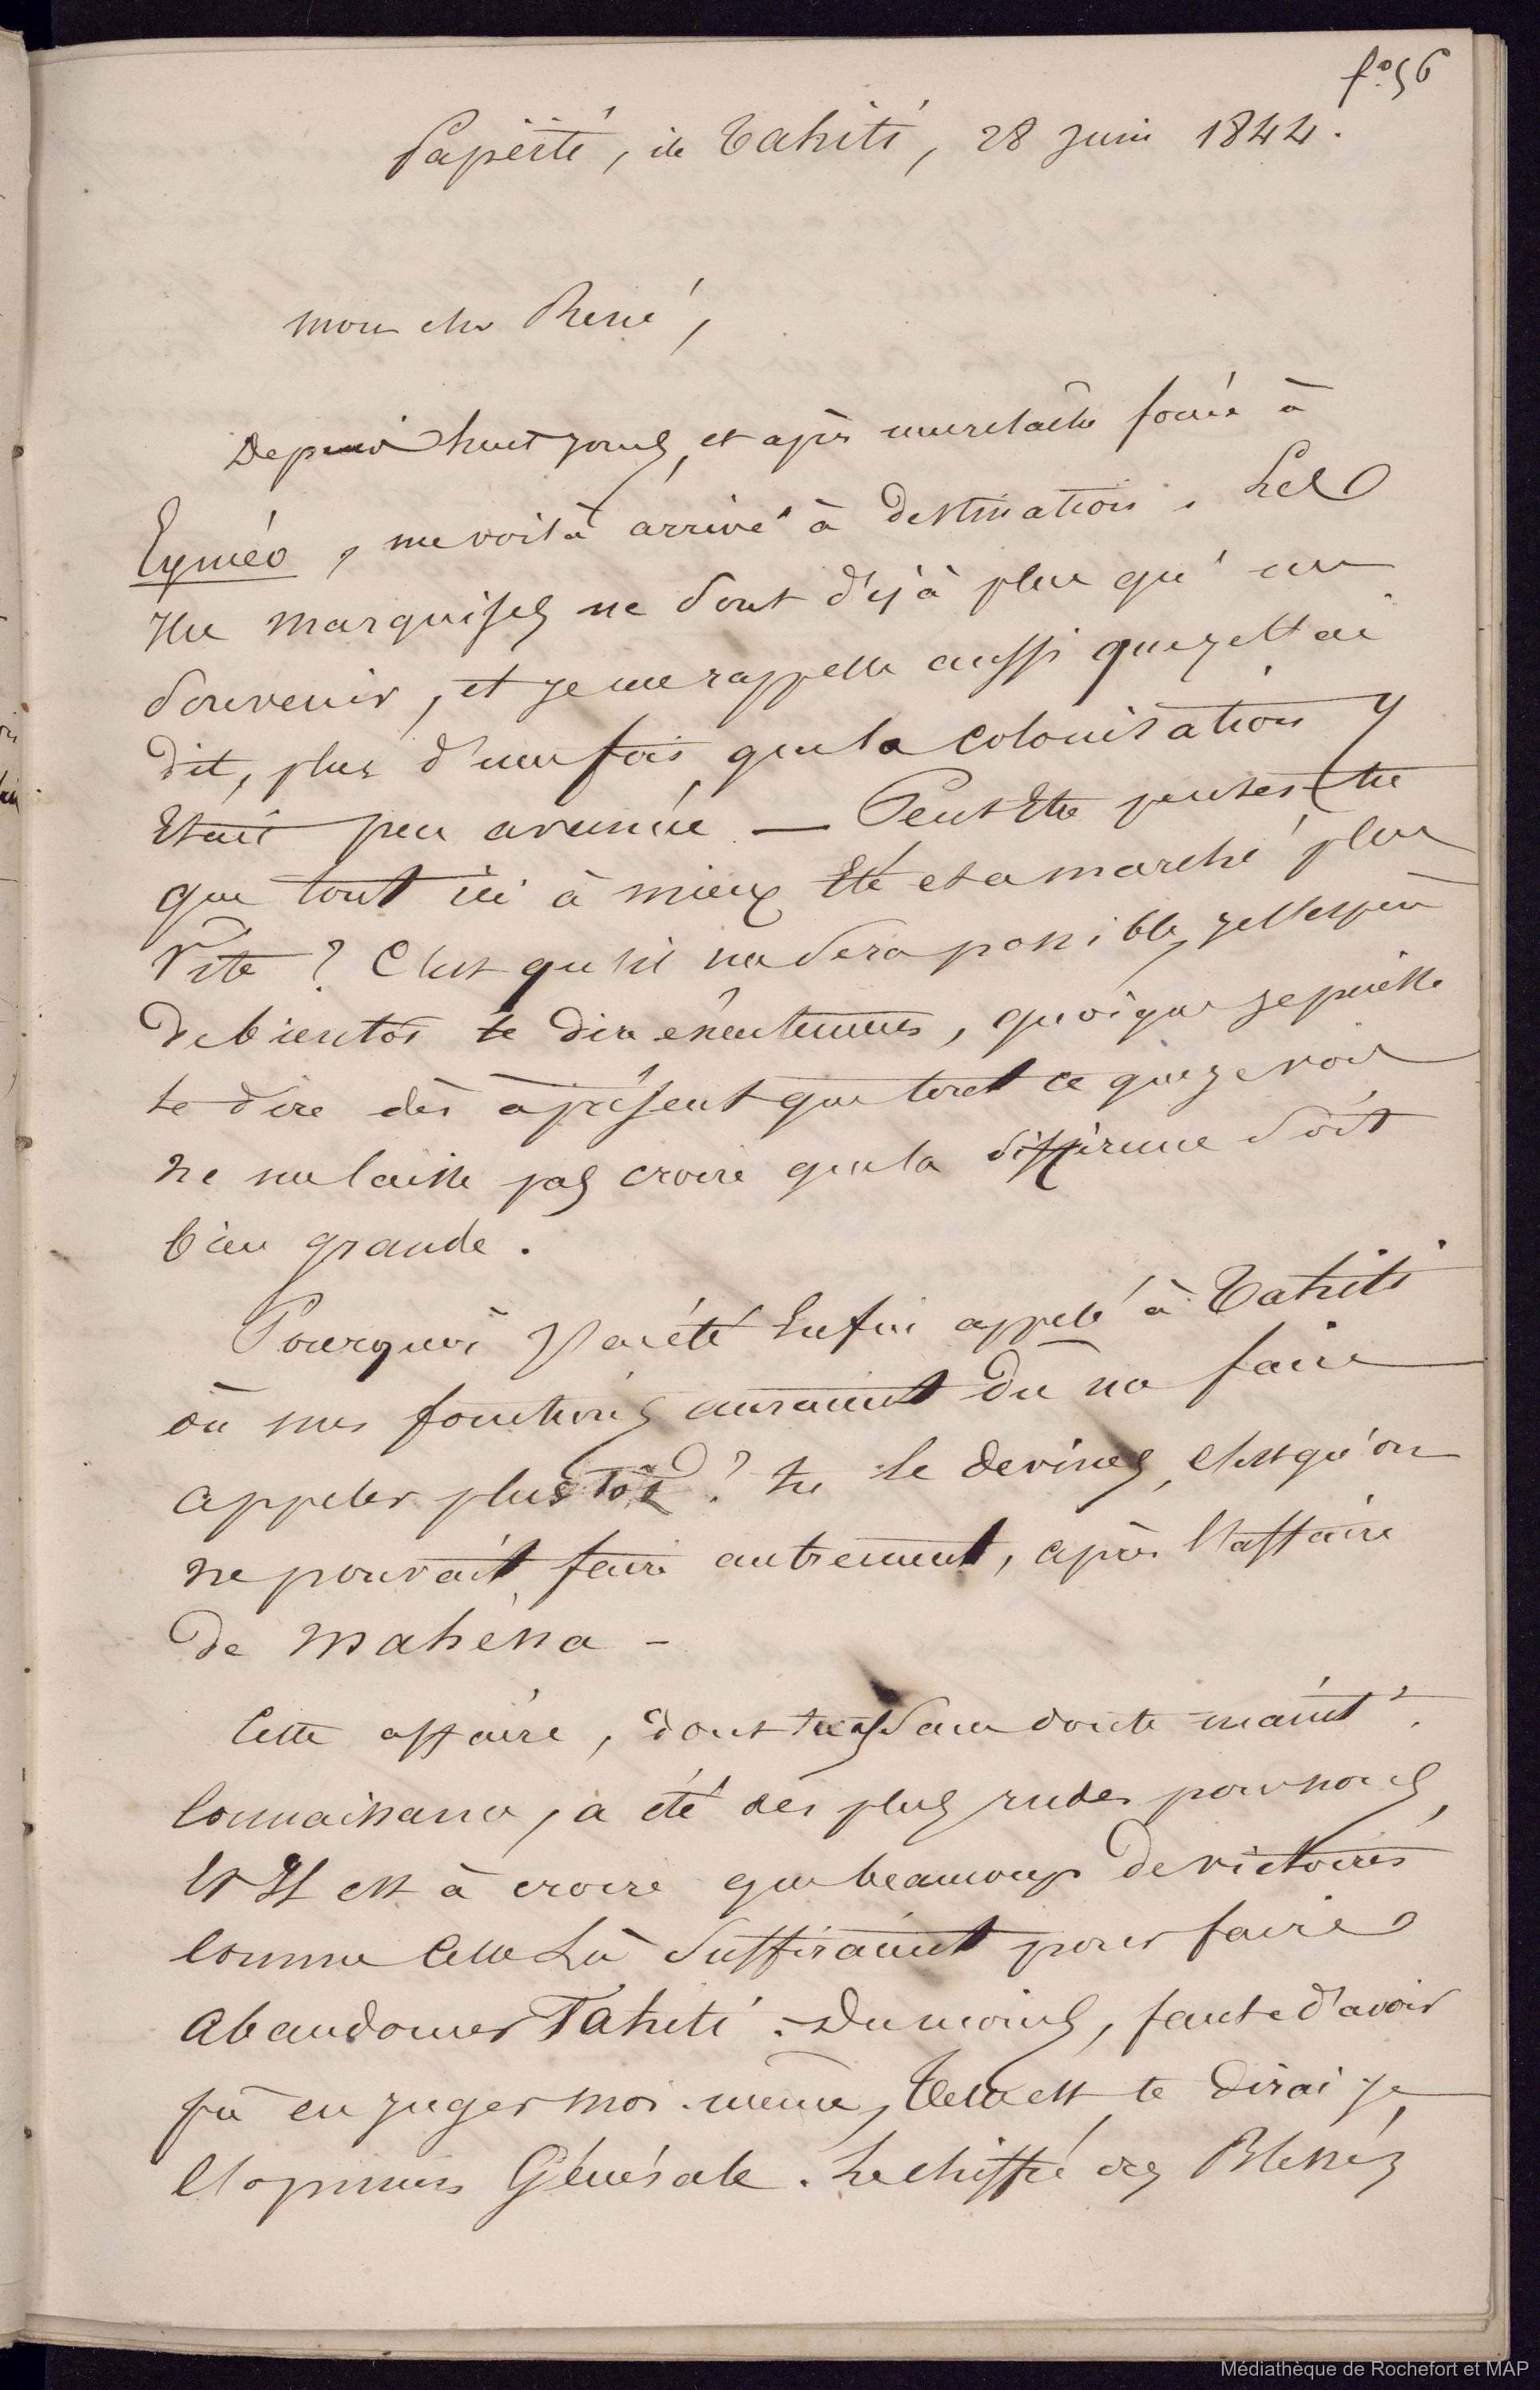 fo 56
Papéïté, île Tahiti, 28 Juin 1844.
mon cher René,
Depuis huit jours, et après une relâche forcée à
Eyméo, me voilà arrivé à destination. Les
Iles Marquises ne sont déjà plus qu'un
souvenir, et je me rappelle aussi que je t'ai
dit, plus d'une fois, que la colonisation y
était peu avancée — Peut Etre penses-tu
que tout ici à mieux été et a marché plus
vite ? C'est qu'il me sera possible, je l'espère
de bientôt te dire exactement, quoique je puisse
te dire dès àprésent que tout ce que je vois
ne me laisse pas croire que la différence soit
bien grande.
Pourquoi J'ai été Enfin appelé à Tahiti
où mes fonctions auraient dû me faire
appeler plus tôt ? tu le devines, c'est qu'on
ne pouvait faire autrement, après l'affaire
de Mahéna -
Cette affaire, dont tu as sans doute maint.t
connaissance, a été des plus rudes pour nous,
Et Il est à croire que beaucoup de victoires
comme celle là suffiraient pour faire
abandonner Tahiti. - Du moins, faute d'avoir
pû en juger moi-même, telle est te dirai je,
l'opinion Générale. Le chiffre des Blessés
Médiathèque de Rochefort et MAP